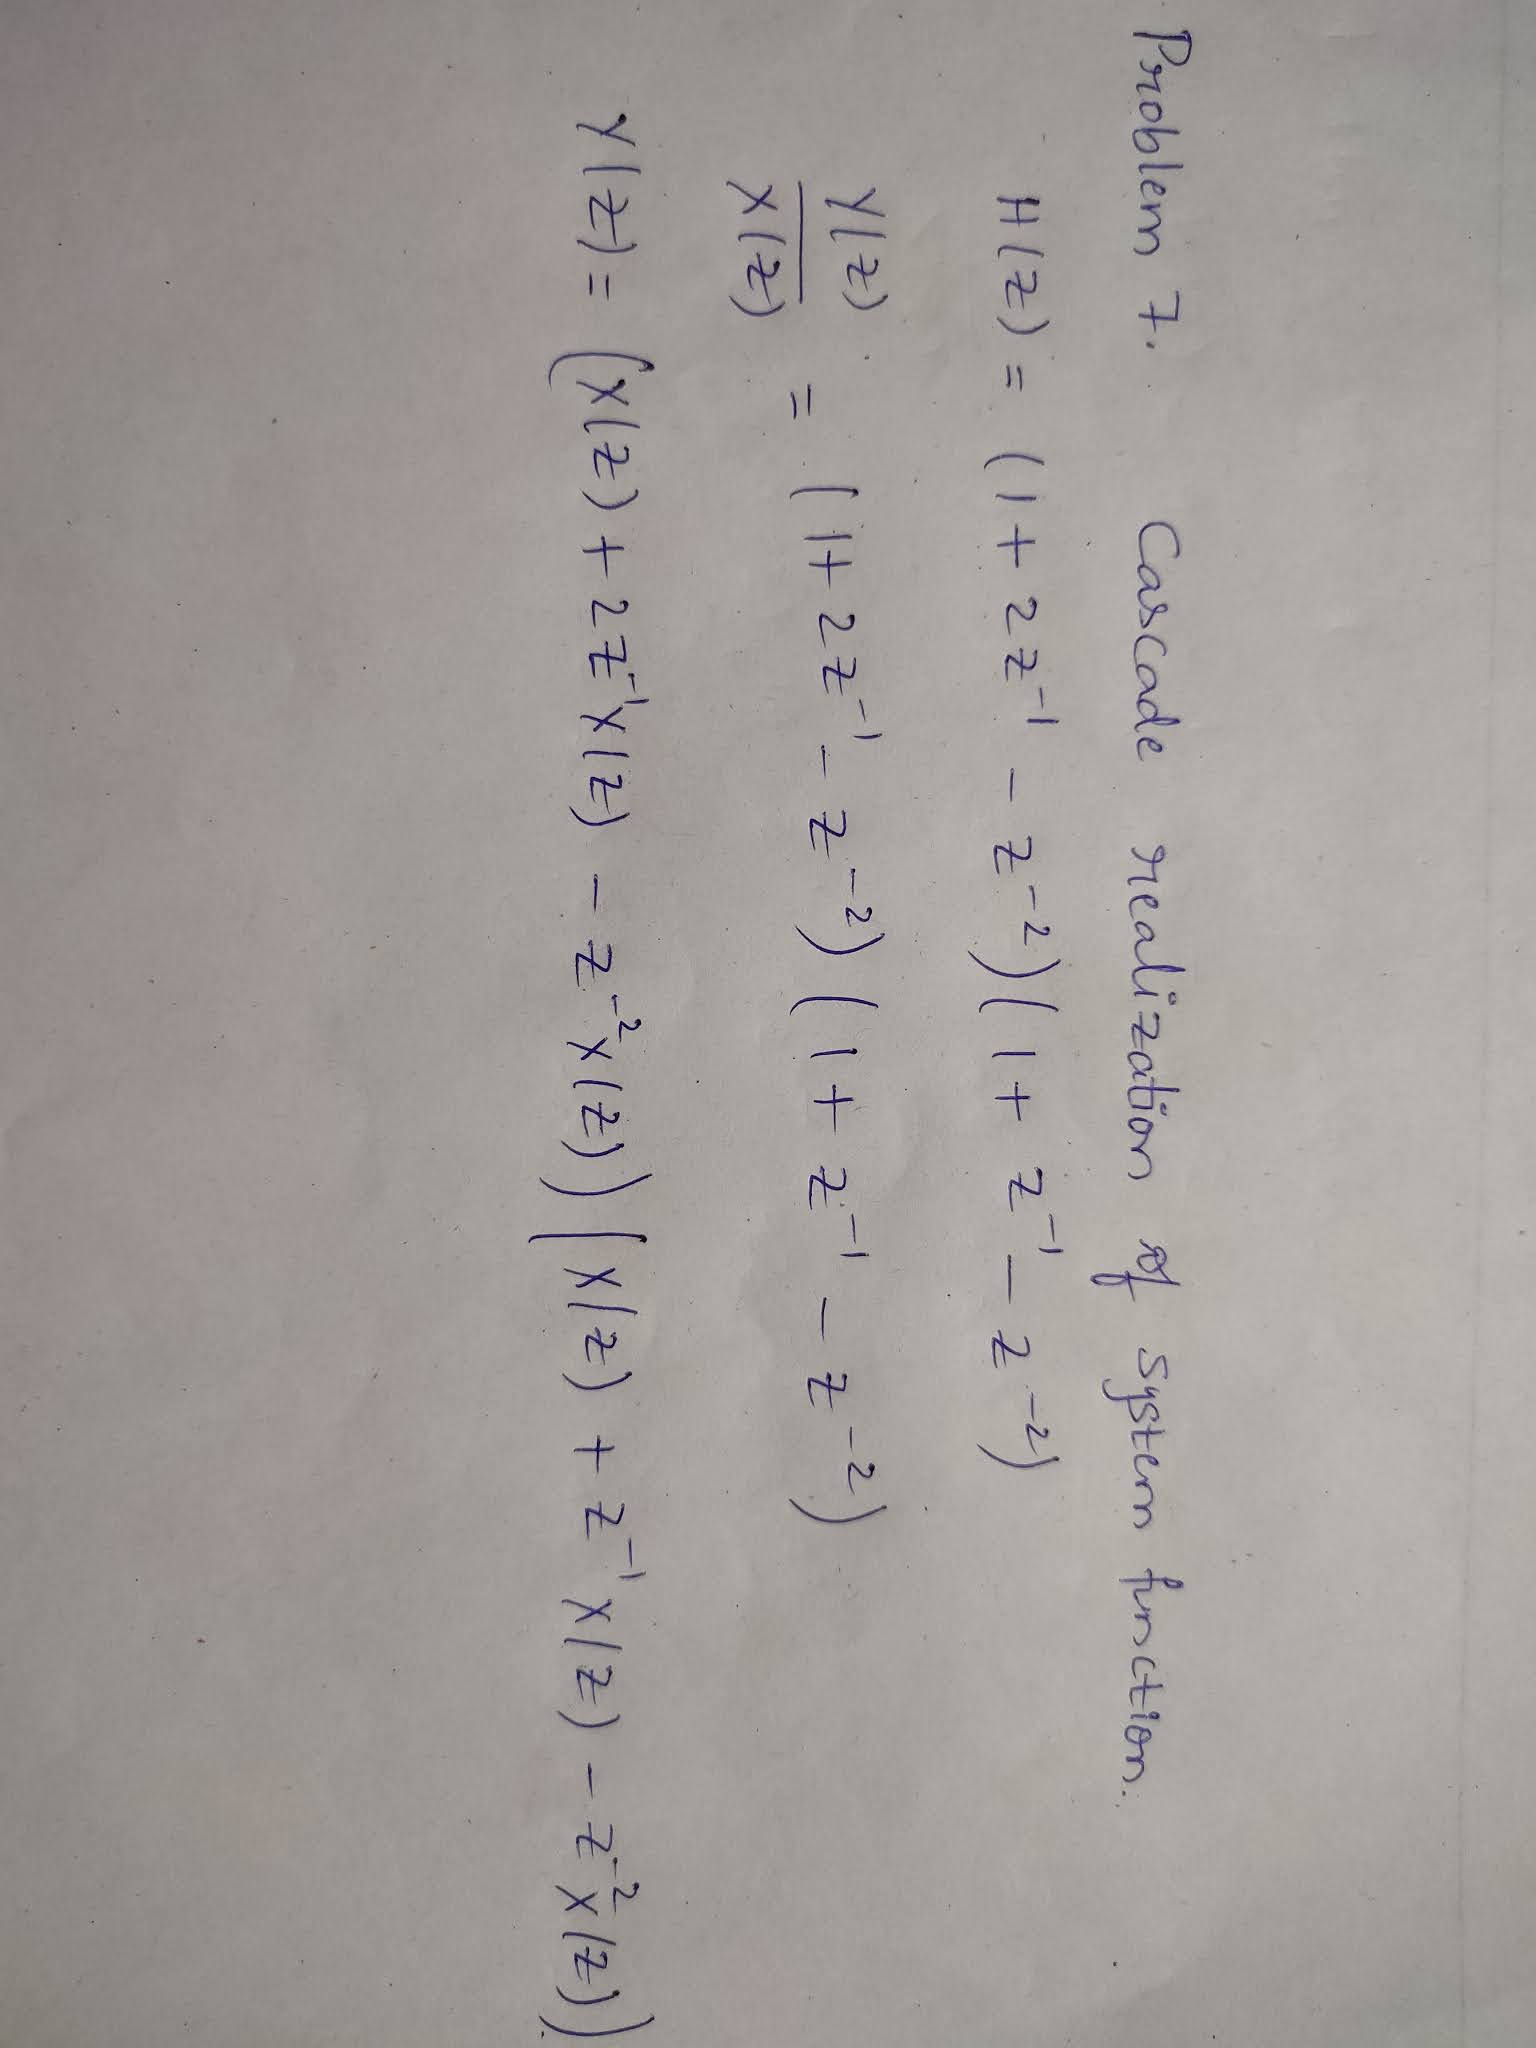 Problem 7. Cascade realization of system function.
H(z) = (1 + 2z⁻¹ - z⁻²)(1 + z⁻¹ - z⁻²)
Y(z)/X(z) = (1 + 2z⁻¹ - z⁻²)(1 + z⁻¹ - z⁻²)
Y(z) = (X(z) + 2z⁻¹X(z) - z⁻²X(z))(X(z) + z⁻¹X(z) - z⁻²X(z)).